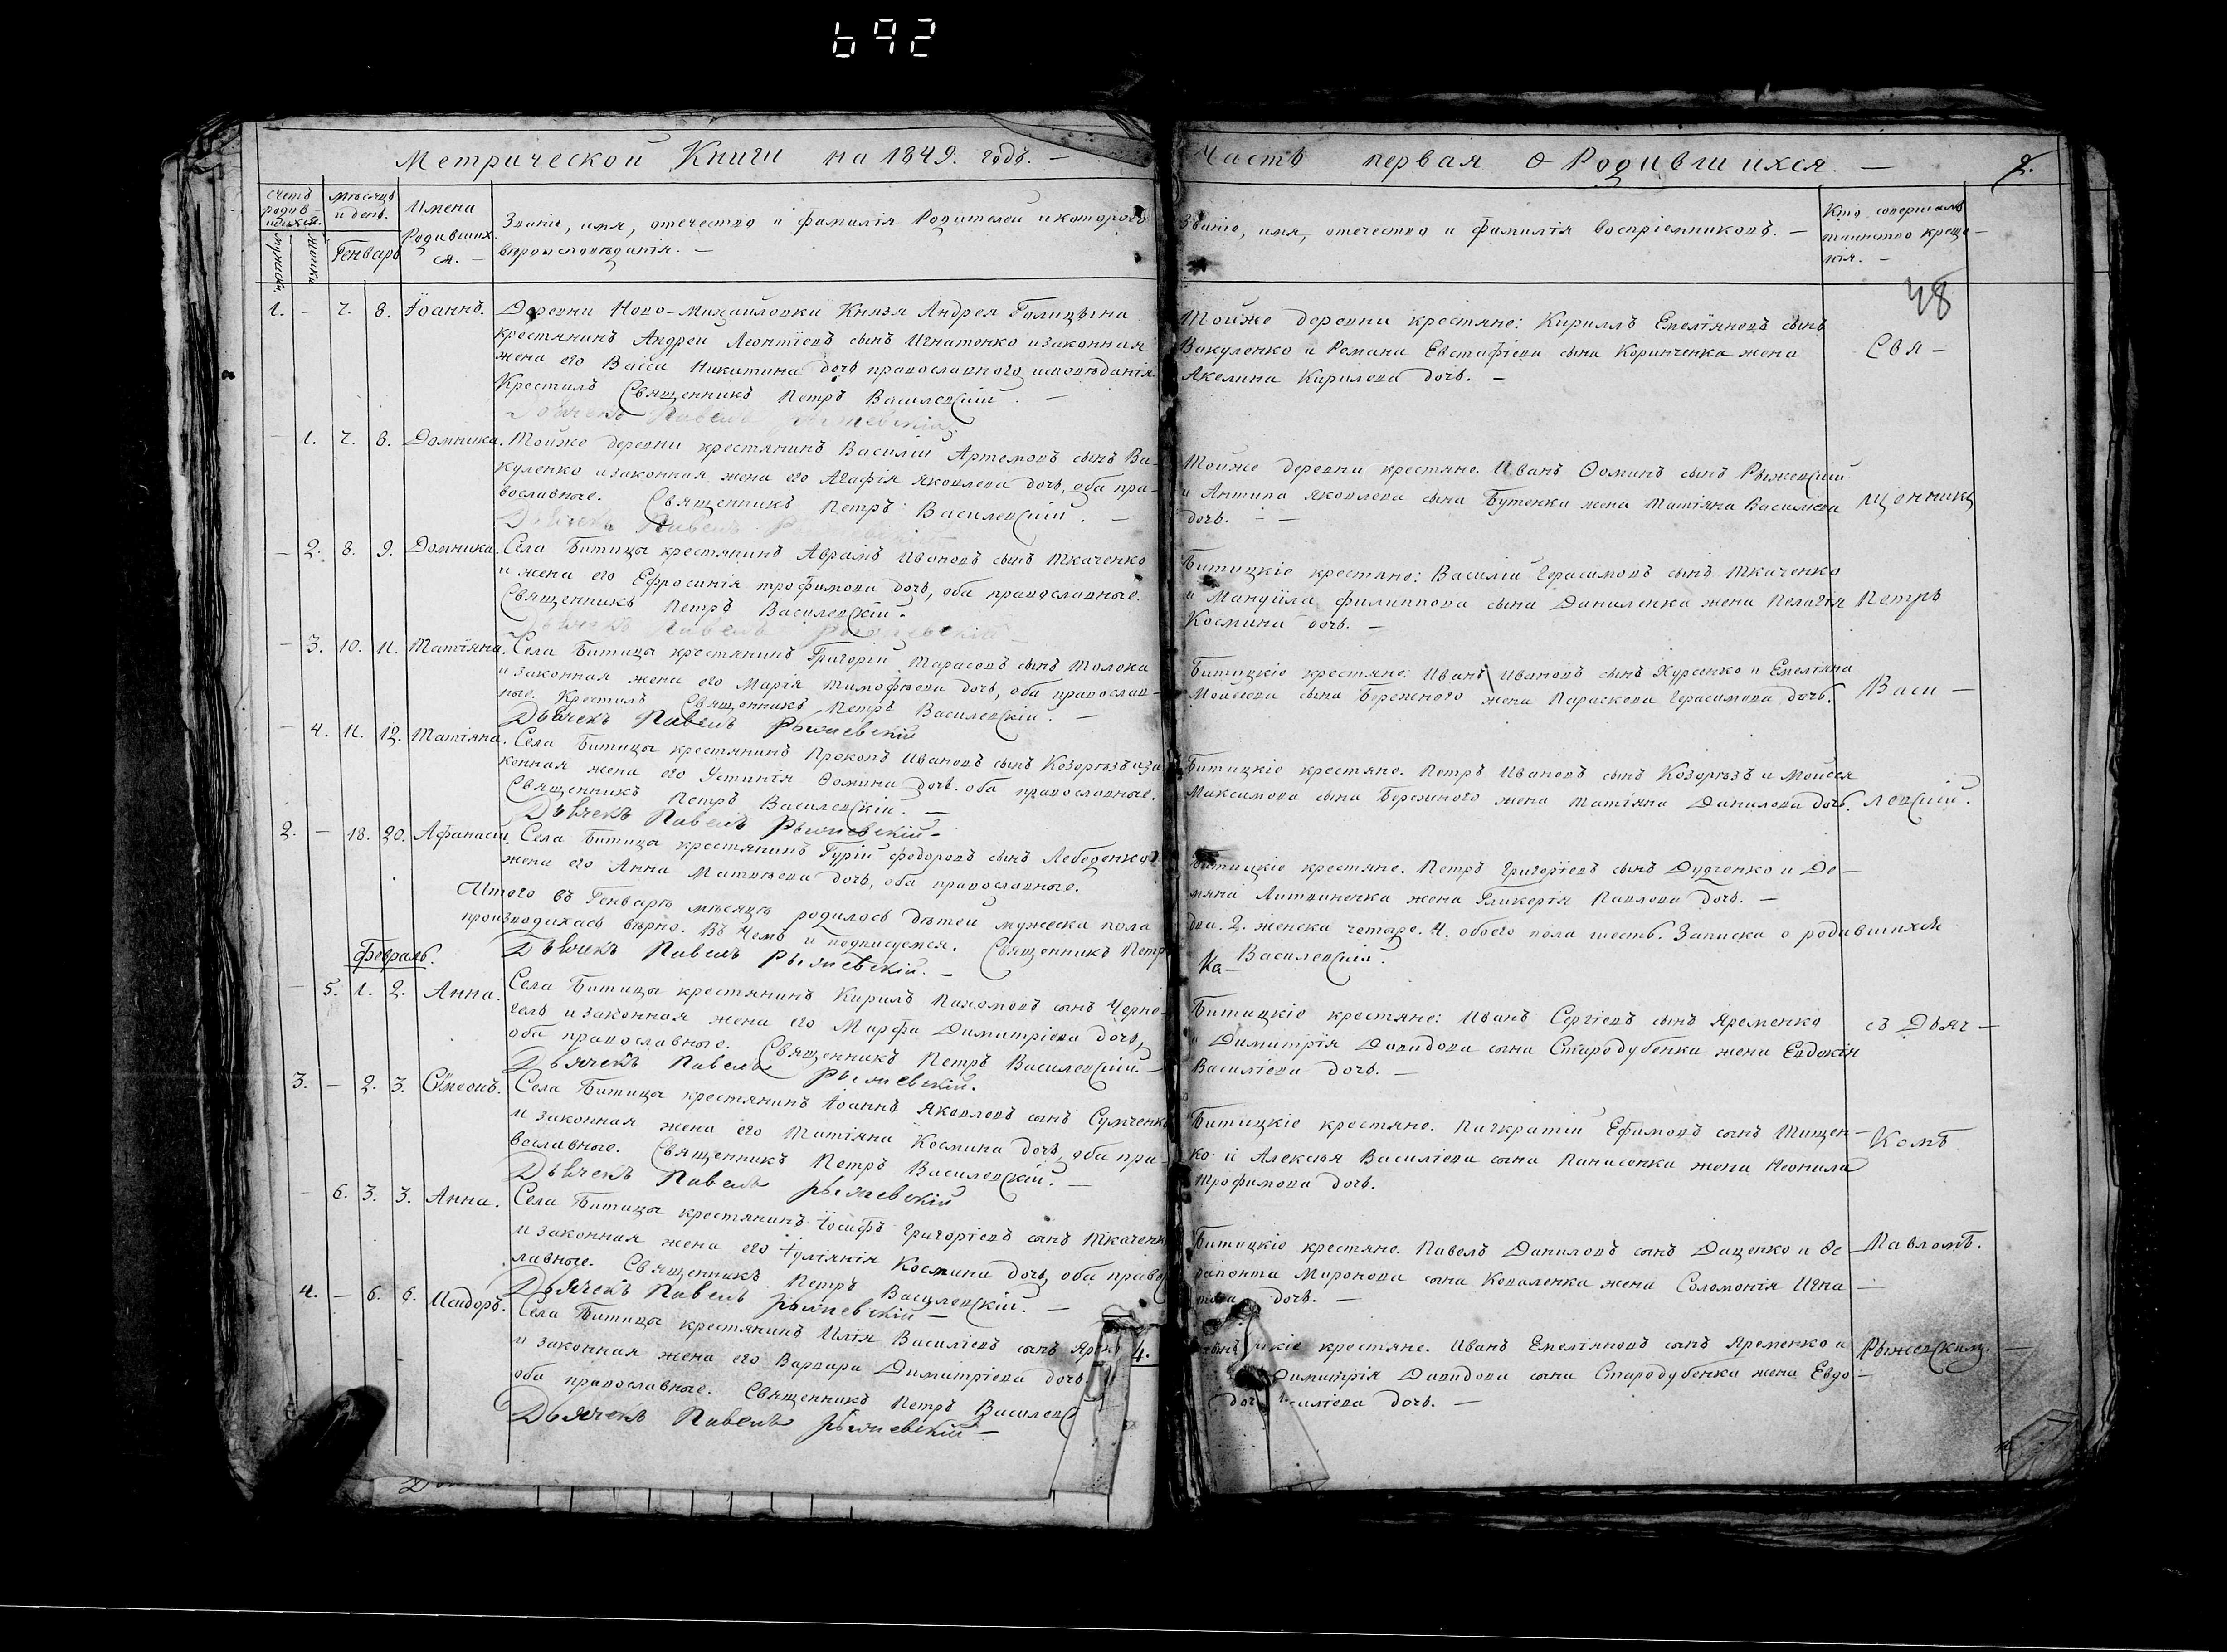 692
Метрической Книги на 1849. годъ. —
Счетъ родив-шихся.
Мѣсяцъ и день.
Генварь
Имена Родивших-ся. —
Званіе, имя, отечество и фамилія Родителей и котораго
вѣроисповѣданія. —
1. — 7. 8. Іоаннъ. Деревни Ново-Михайловки Князя Андрея Голицына
крестянинъ Андрей Леонтіевъ сынъ Игнатенко и законная
жена его Васса Никитина дочь православнаго исповѣданія.
Крестилъ Священникъ Петръ Василевскій. —
Дьячекъ Павелъ Рыжевскій
— 1. 7. 8. Домника. Тойже деревни крестянинъ Василій Артемовъ сынъ Ва-
куленко и законная жена его Агафія Яковлева дочь, оба пра-
вославные. Священникъ Петръ Василевскій. —
Дьячекъ Павелъ
— 2. 8. 9. Домника. Села Битицы крестянинъ Аврамъ Ивановъ сынъ Ткаченко
и жена его Ефросинія Трофимова дочь, оба православные.
Священникъ Петръ Василевскій.
Дьячекъ Павелъ Рыжевскій —
— 3. 10. 11. Матіяна. Села Битицы крестянинъ Григорій Тарасовъ сынъ Толока
и законная жена его Марія Тимофѣева дочь, оба православ-
ные. Крестилъ Священникъ Петръ Василевскій. —
Дьячекъ Павелъ Рыжевскій
— 4. 11. 12. Татіяна. Села Битицы крестянинъ Прокопъ Ивановъ сынъ Козорѣзъ и за-
конная жена его Устинія Ѳомина дочь. оба православные.
Священникъ Петръ Василевскій. —
Дьячекъ Павелъ Рыжевскій —
2. — 18. 20. Афанасій. Села Битицы крестянинъ Гурій Федоровъ сынъ Лебеденко
жена его Анна Матвѣева дочь, оба православные.
Итого въ Генварѣ мѣсяцѣ родилось дѣтей мужеска пола
производилась вѣрно. Въ чемъ и подписуемся. Священникъ Петръ
Дьячекъ Павелъ Рыжевскій. —
Февраль.
— 5. 1. 2. Анна. Села Битицы крестянинъ Кирилъ Пахомовъ сынъ Черне-
гель и законная жена его Марфа Димитріева дочь,
оба православные. Священникъ Петръ Василевскій. —
Дьячекъ Павелъ Рыжевскій.
3. — 2. 3. Сѵмеонъ. Села Битицы крестянинъ Іоаннъ Яковлевъ сынъ Сумченко
и законная жена его Татіяна Космина дочь, оба пра-
вославные. Священникъ Петръ Василевскій. —
Дьячекъ Павелъ Рыжевскій
— 6. 3. 3. Анна. Села Битицы крестянинъ Іосифъ Григоріевъ сынъ Ткаченко
и законная жена его Іуліянія Космина дочь, оба право-
лавные. Священникъ Петръ Василевскій. —
Дьячекъ Павелъ Рыжевскій —
4. — 6. 6. Исидоръ. Села Битицы крестянинъ Илія Василіевъ сынъ
и законная жена его Варвара Димитріева дочь
оба православные. Священникъ Петръ Василевс
Дьячекъ Павелъ Рыжевскій —
4.
Часть первая о Родившихся. — 2.
Званіе, имя, отечество и фамилія воспріемниковъ. —
Кто совершалъ таинство креще-нія. —
48
Тойже деревни крестяне: Кириллъ Емеліяновъ сынъ
Вакуленко и Романа Евстафіева сына Коринченка жена
Акелина Кирилова дочь. —
Свя-
Тойже деревни крестяне. Иванъ Ѳоминъ сынъ Рыжевскій
и Антипа Яковлева сына Бутенка жена Татіяна Василіева
дочь. —
щенникъ
Битицкіе крестяне: Василій Герасимовъ сынъ Ткаченко
и Мануйла Филиппова сына Даниленка жена Пелагія
Космина дочь. —
Петръ
Битицкіе крестяне: Иванъ Ивановъ сынъ Хурсенко и Емеліяна
Моисеева сына Бережного жена Параскева Герасимова дочь.
Васи-
Битицкіе крестяне. Петръ Ивановъ сынъ Козорѣзъ и Мойсея
Максимова сына Бережного жена Татіяна Данилова дочь.
левскій.
Битицкіе крестяне. Петръ Григоріевъ сынъ Дудченко и Де-
мяна Литвиненка жена Гликерія Павлова дочь. —
два. 2. женска четыре. 4. обоего пола шесть. Записка о родившихся
Василевскій.
Битицкіе крестяне: Иванъ Сергіевъ сынъ Яременко
и Димитрія Давидова сына Стародубенка жена Евдокія
Василіева дочь. —
съ Дьяч-
Битицкіе крестяне. Панкратій Ефимовъ сынъ Тищен-
ко и Алексѣя Василіева сына Панасенка жена Неонила
Трофимова дочь.
комъ
Битицкіе крестяне. Павелъ Даниловъ сынъ Даценко и Ѳе-
рапонта Миронова сына Коваленка жена Соломонія Игна-
това дочь. —
Павломъ.
кіе крестяне. Иванъ Емеліяновъ сынъ Яременко и
Димитрія Давидова сына Стародубенка жена Евдо-
Василіева дочь. —
Рыжевскимъ. —